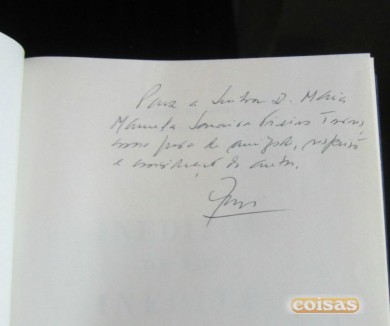 Para a Senhora D. Maria
Manuela Vieira
como prova de amizade, respeito
e consideração do autor,
coisas